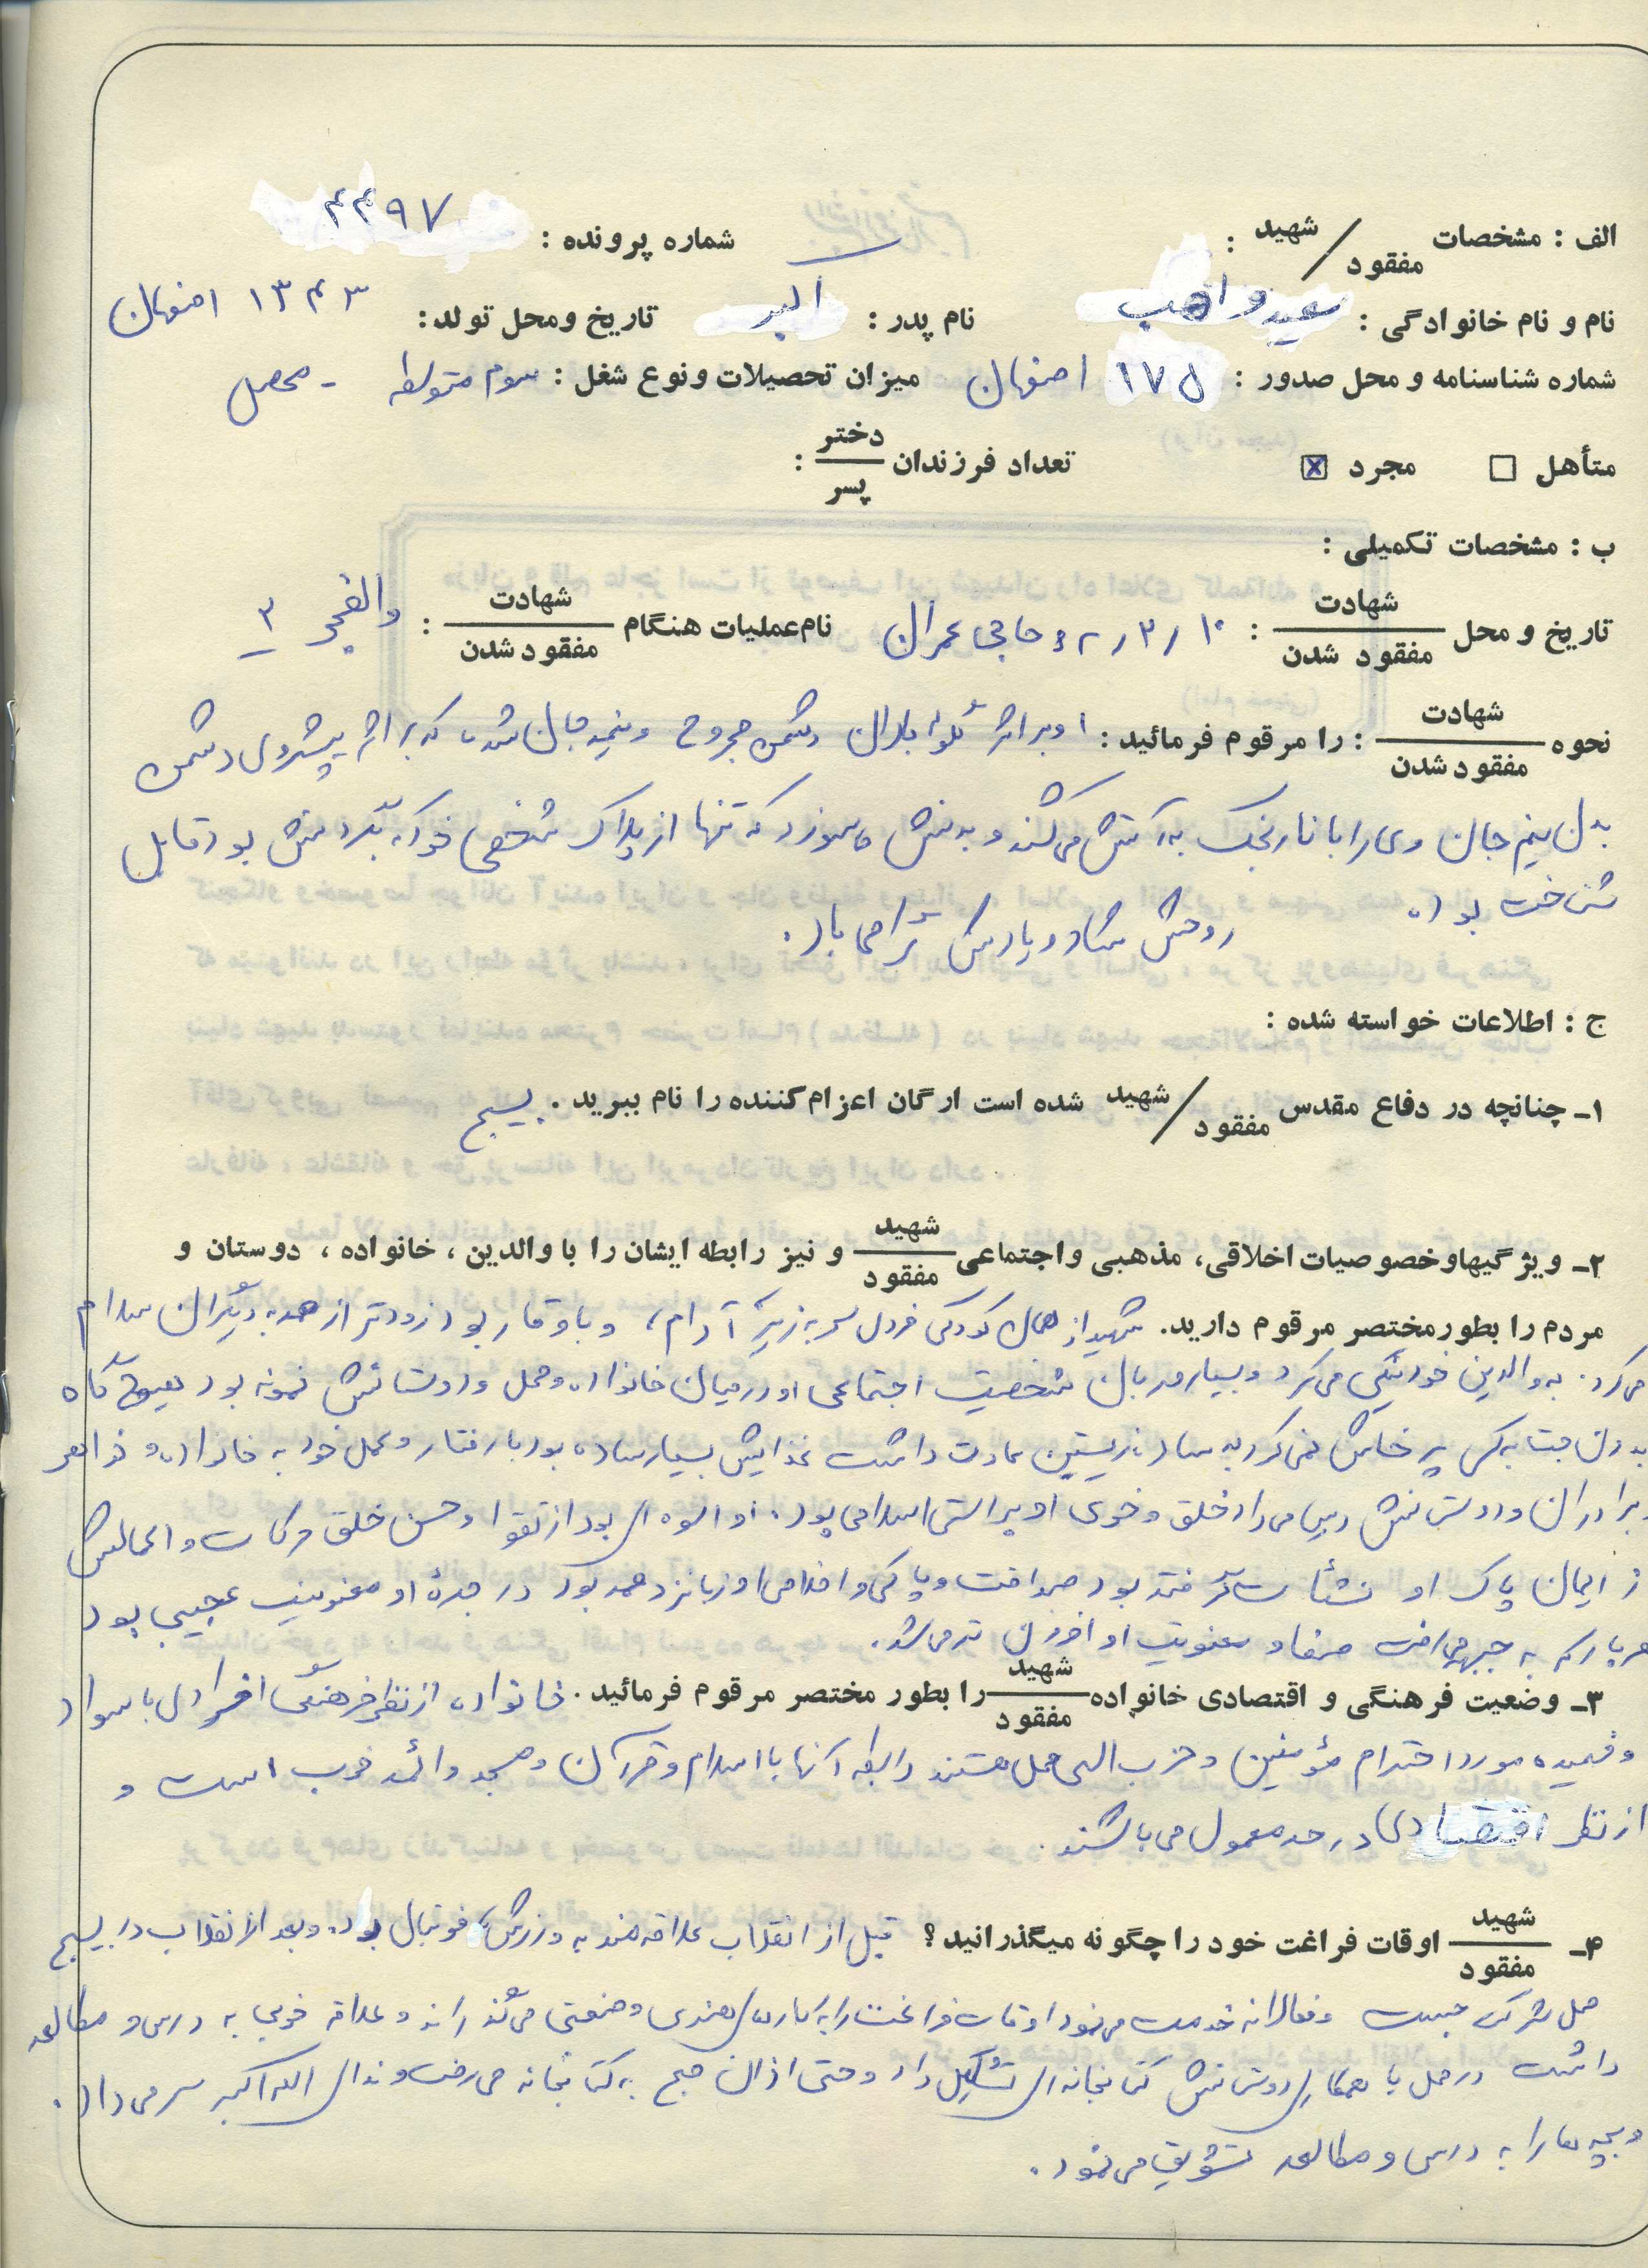 الف : مشخصات شهید / مفقود : شماره پرونده : ۴۴۹۷
نام و نام خانوادگی : سعید واهب نام پدر : اکبر تاریخ ومحل تولد : ۱۳۴۳ اصفهان
شماره شناسنامه و محل صدور : ۱۷۵ اصفهان میزان تحصیلات و نوع شغل : سوم متوسطه - محصل
متأهل ☐ مجرد ☒ تعداد فرزندان دختر / پسر :
ب : مشخصات تکمیلی :
تاریخ و محل شهادت / مفقود شدن : ۱۰ / ۳ / ۶۲ حاجی عمران نام عملیات هنگام شهادت / مفقود شدن : والفجر ۳
نحوه شهادت / مفقود شدن : را مرقوم فرمائید : او بر اثر گلوله باران دشمن مجروح و نیمه جان شده که بر اثر پیشروی دشمن
بدن نیم جان وی را با نارنجک به آتش می کشند و بدنش می سوزد که تنها از پلاک شخصی خود که بگردنش بود قابل
شناخت بود.
روحش شاد و یادش گرامی باد.
ج : اطلاعات خواسته شده :
۱- چنانچه در دفاع مقدس شهید / مفقود شده است ارگان اعزام کننده را نام ببرید . بسیج
۲- ویژگیها و خصوصیات اخلاقی، مذهبی و اجتماعی شهید / مفقود و نیز رابطه ایشان را با والدین ، خانواده ، دوستان و
مردم را بطور مختصر مرقوم دارید. شهید از همان کودکی فردی سر به زیر، آرام، و با وقار بود زودتر از همه به دیگران سلام
می کرد. به والدین خود نیکی می کرد و بسیار مهربان شخصیت اجتماعی او در میان خانواده و محل و دوستانش نمونه بود هیچ گاه
بدون جهت به کسی پرخاش نمی کرد به ساده زیستن عادت داشت غذایش بسیار ساده بود با رفتار و عمل خود به خانواده و خواهر
و برادران و دوستانش درس می داد خلق و خوی او براستی اسلامی بود. او اسوه ای بود از تقوا و حسن خلق حرکات و اعمالش
از ایمان پاک او نشأت گرفته بود صداقت و پاکی و اخلاص او زبانزد همه بود در چهرۀ او معنویت عجیبی بود
هر بار که به جبهه می رفت صفا و معنویت او افزون تر می شد.
۳- وضعیت فرهنگی و اقتصادی خانواده شهید / مفقود را بطور مختصر مرقوم فرمائید. خانواده از نظر فرهنگی افرادی با سواد
و فهمیده مورد احترام مؤمنین و حزب الهی محل هستند رابطه آنها با اسلام و قرآن و مسجد و ائمه خوب است و
از نظر اقتصادی در حد معمول می باشند.
۴- شهید / مفقود اوقات فراغت خود را چگونه میگذرانید؟ قبل از انقلاب علاقمند به ورزش فوتبال بود. و بعد از انقلاب در بسیج
محل شرکت جست و فعالانه خدمت می نمود اوقات فراغت را به کارهای هنری و صنعتی می گذراند و علاقه خوبی به درس و مطالعه
داشت در محل با همکاری دوستانش کتابخانه ای تشکیل داد و حتی اذان صبح به کتابخانه می رفت و ندای الله اکبر سر می داد.
و بچه ها را به درس و مطالعه تشویق می نمود.